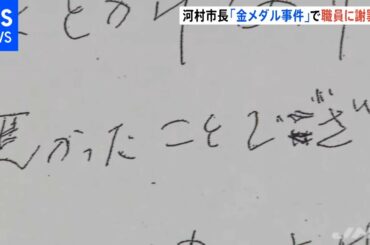 BS
NEWS
河村市長「金メダル事件」で職員に謝
悪かったことでござ